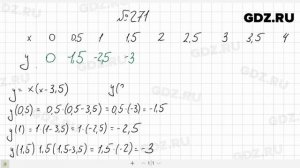 GDZ.RU
№271
x 0 0,5 1 1,5 2 2,5 3 3,5 4
y 0 -1,5 -2,5 -3
y = x(x-3,5) y(
y(0,5) = 0,5·(0,5-3,5) = 0,5·(-3) = -1,5
y(1) = 1·(1-3,5) = 1·(-2,5) = -2,5
y(1,5) 1,5(1,5-3,5) = 1,5·(-2) = -3
GDZ.RU